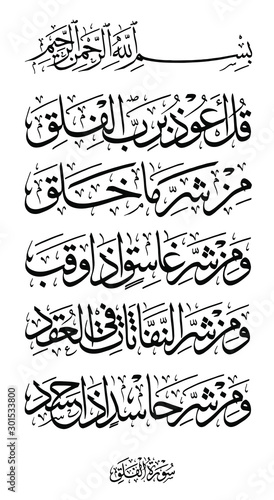 بِسْمِ اللَّهِ الرَّحْمَنِ الرَّحِيمِ
قُلْ أَعُوذُ بِرَبِّ الْفَلَقِ
مِنْ شَرِّ مَا خَلَقَ
وَمِنْ شَرِّ غَاسِقٍ إِذَا وَقَبَ
وَمِنْ شَرِّ النَّفَّاثَاتِ فِي الْعُقَدِ
وَمِنْ شَرِّ حَاسِدٍ إِذَا حَسَدَ
سُورَةُ الْفَلَقِ
Adobe Stock | #301533800